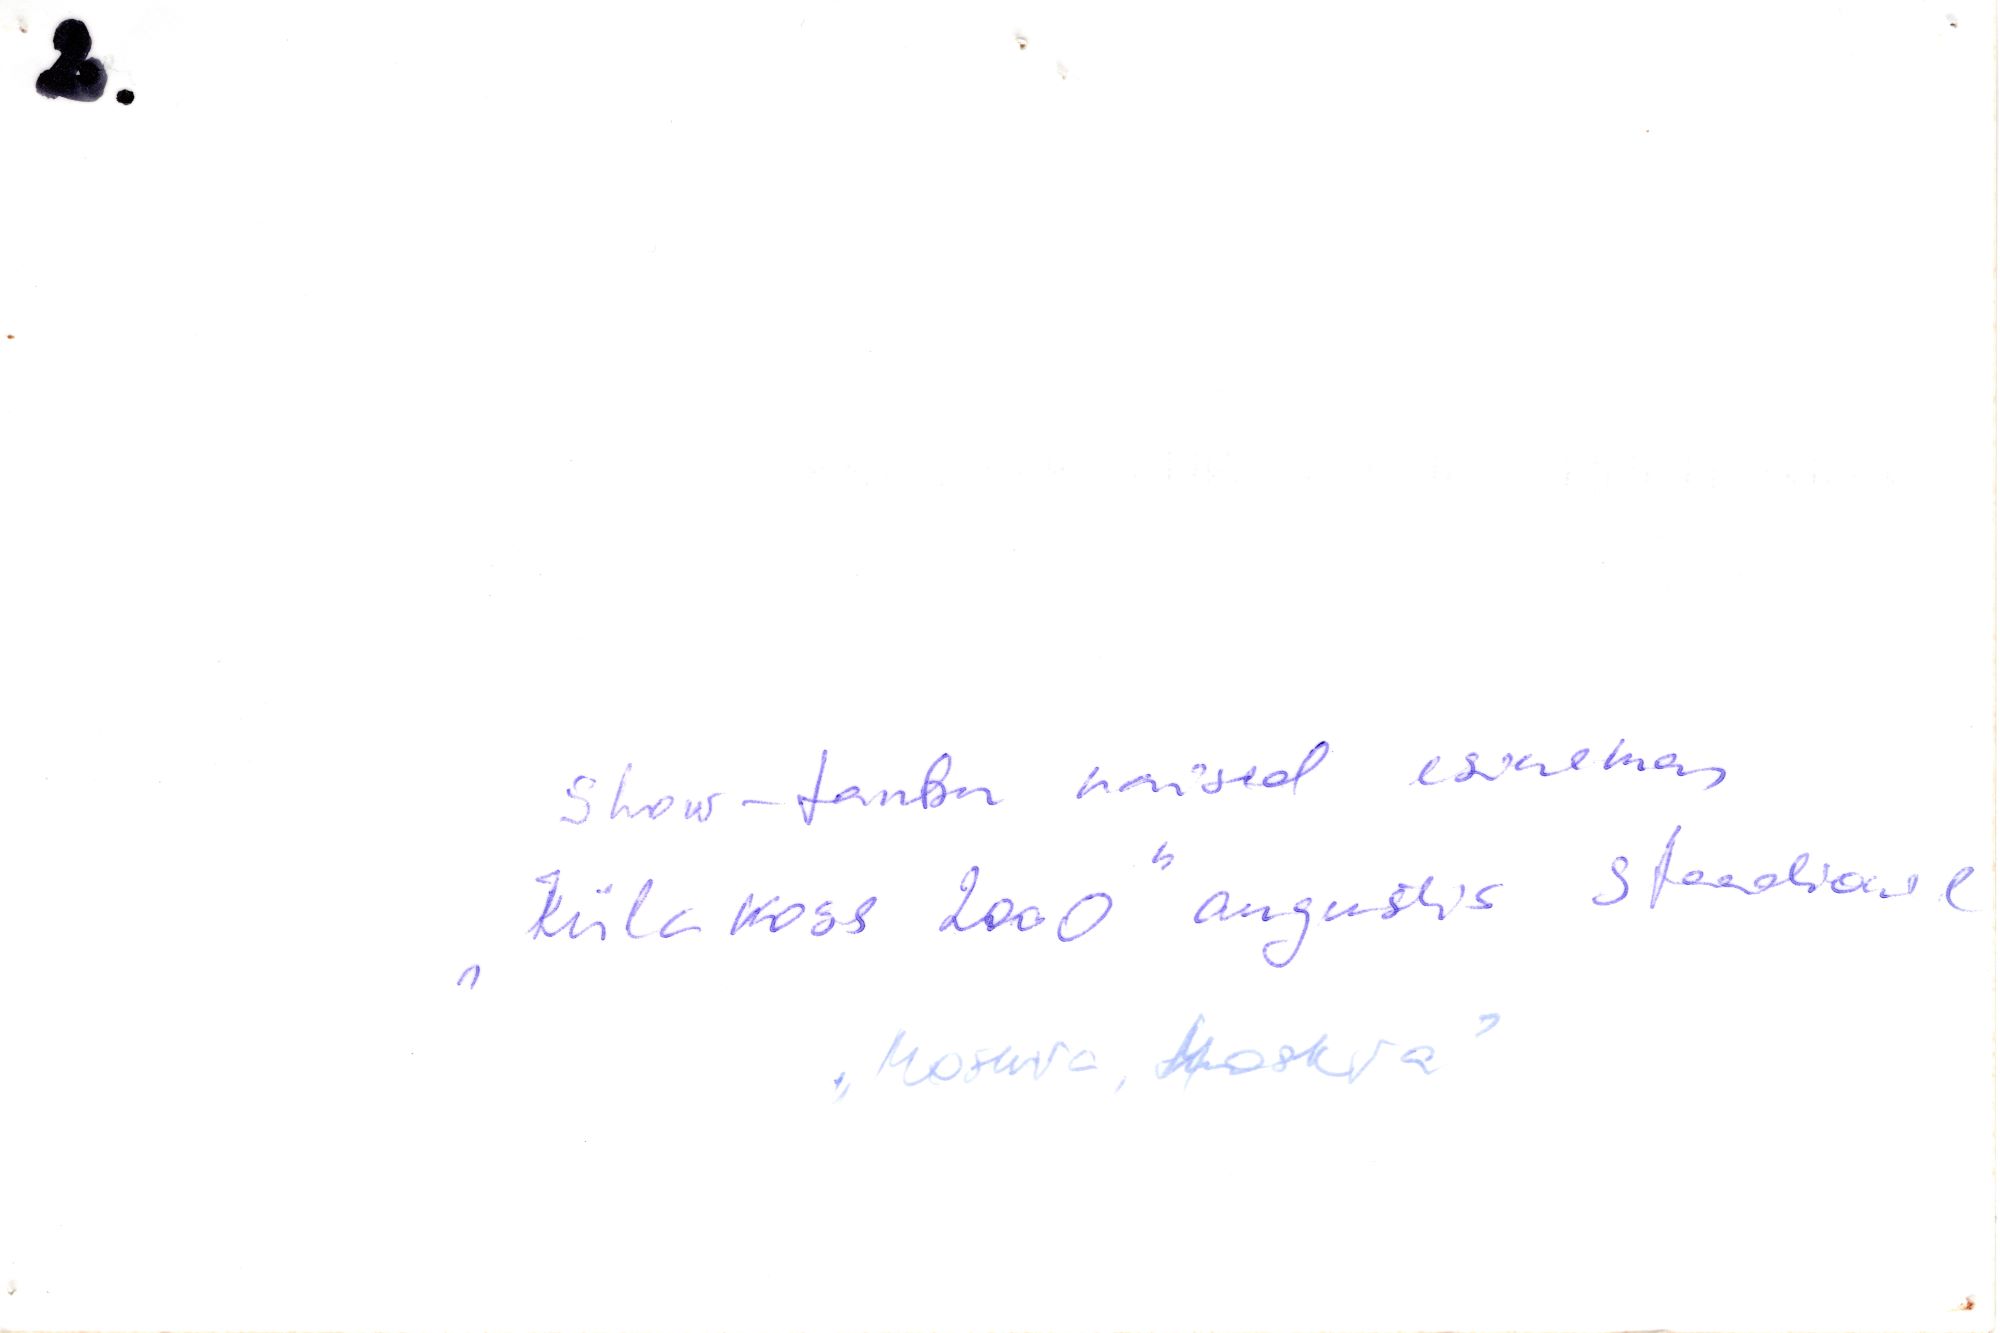 2.
Show-tantsu naised esinemas
„Külakoss 2000" augustis staadionil
„Moskva, Moskva"